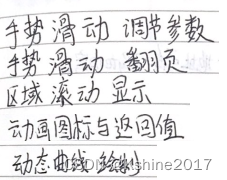 手势滑动 调节参数
手势滑动 翻页
区域滚动显示
动画图标与返回值
动态曲线绘制